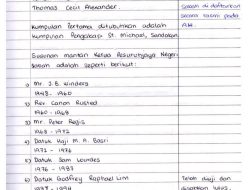 Thomas Cecil Alexander.
Kumpulan Pertama ditubuhkan adalah
Kumpulan Pengakap St. Michael, Sandakan.
Susunan mantan Ketua Pesuruhjaya Negeri
Sabah adalah seperti berikut:
1) Mr. J.B. Winders
1968
2) Rev. Canon Rusted
1960 - 1968
3) Mr. Peter Regis
1968 - 1972
4) Datuk Haji M. A. Basri
1972 - 1976
5) Datuk Sam Lourdes
1976 - 1987
6) Datuk Godfrey Raphael Lim
1987 - 1994
Sabah di daftarkan
secara rasmi pada
Telah diuji dan